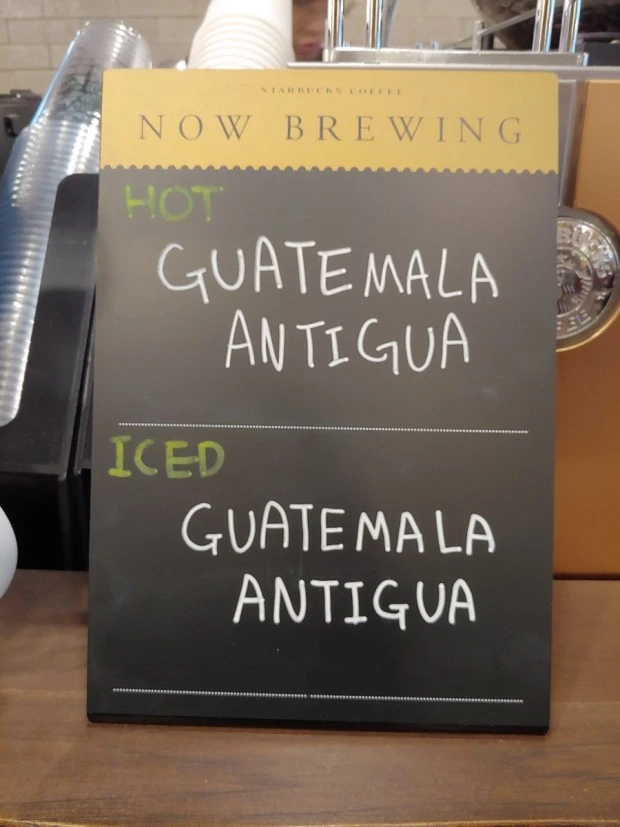 STARBUCKS COFFEE
NOW BREWING
HOT
GUATEMALA
ANTIGUA
ICED
GUATEMALA
ANTIGUA